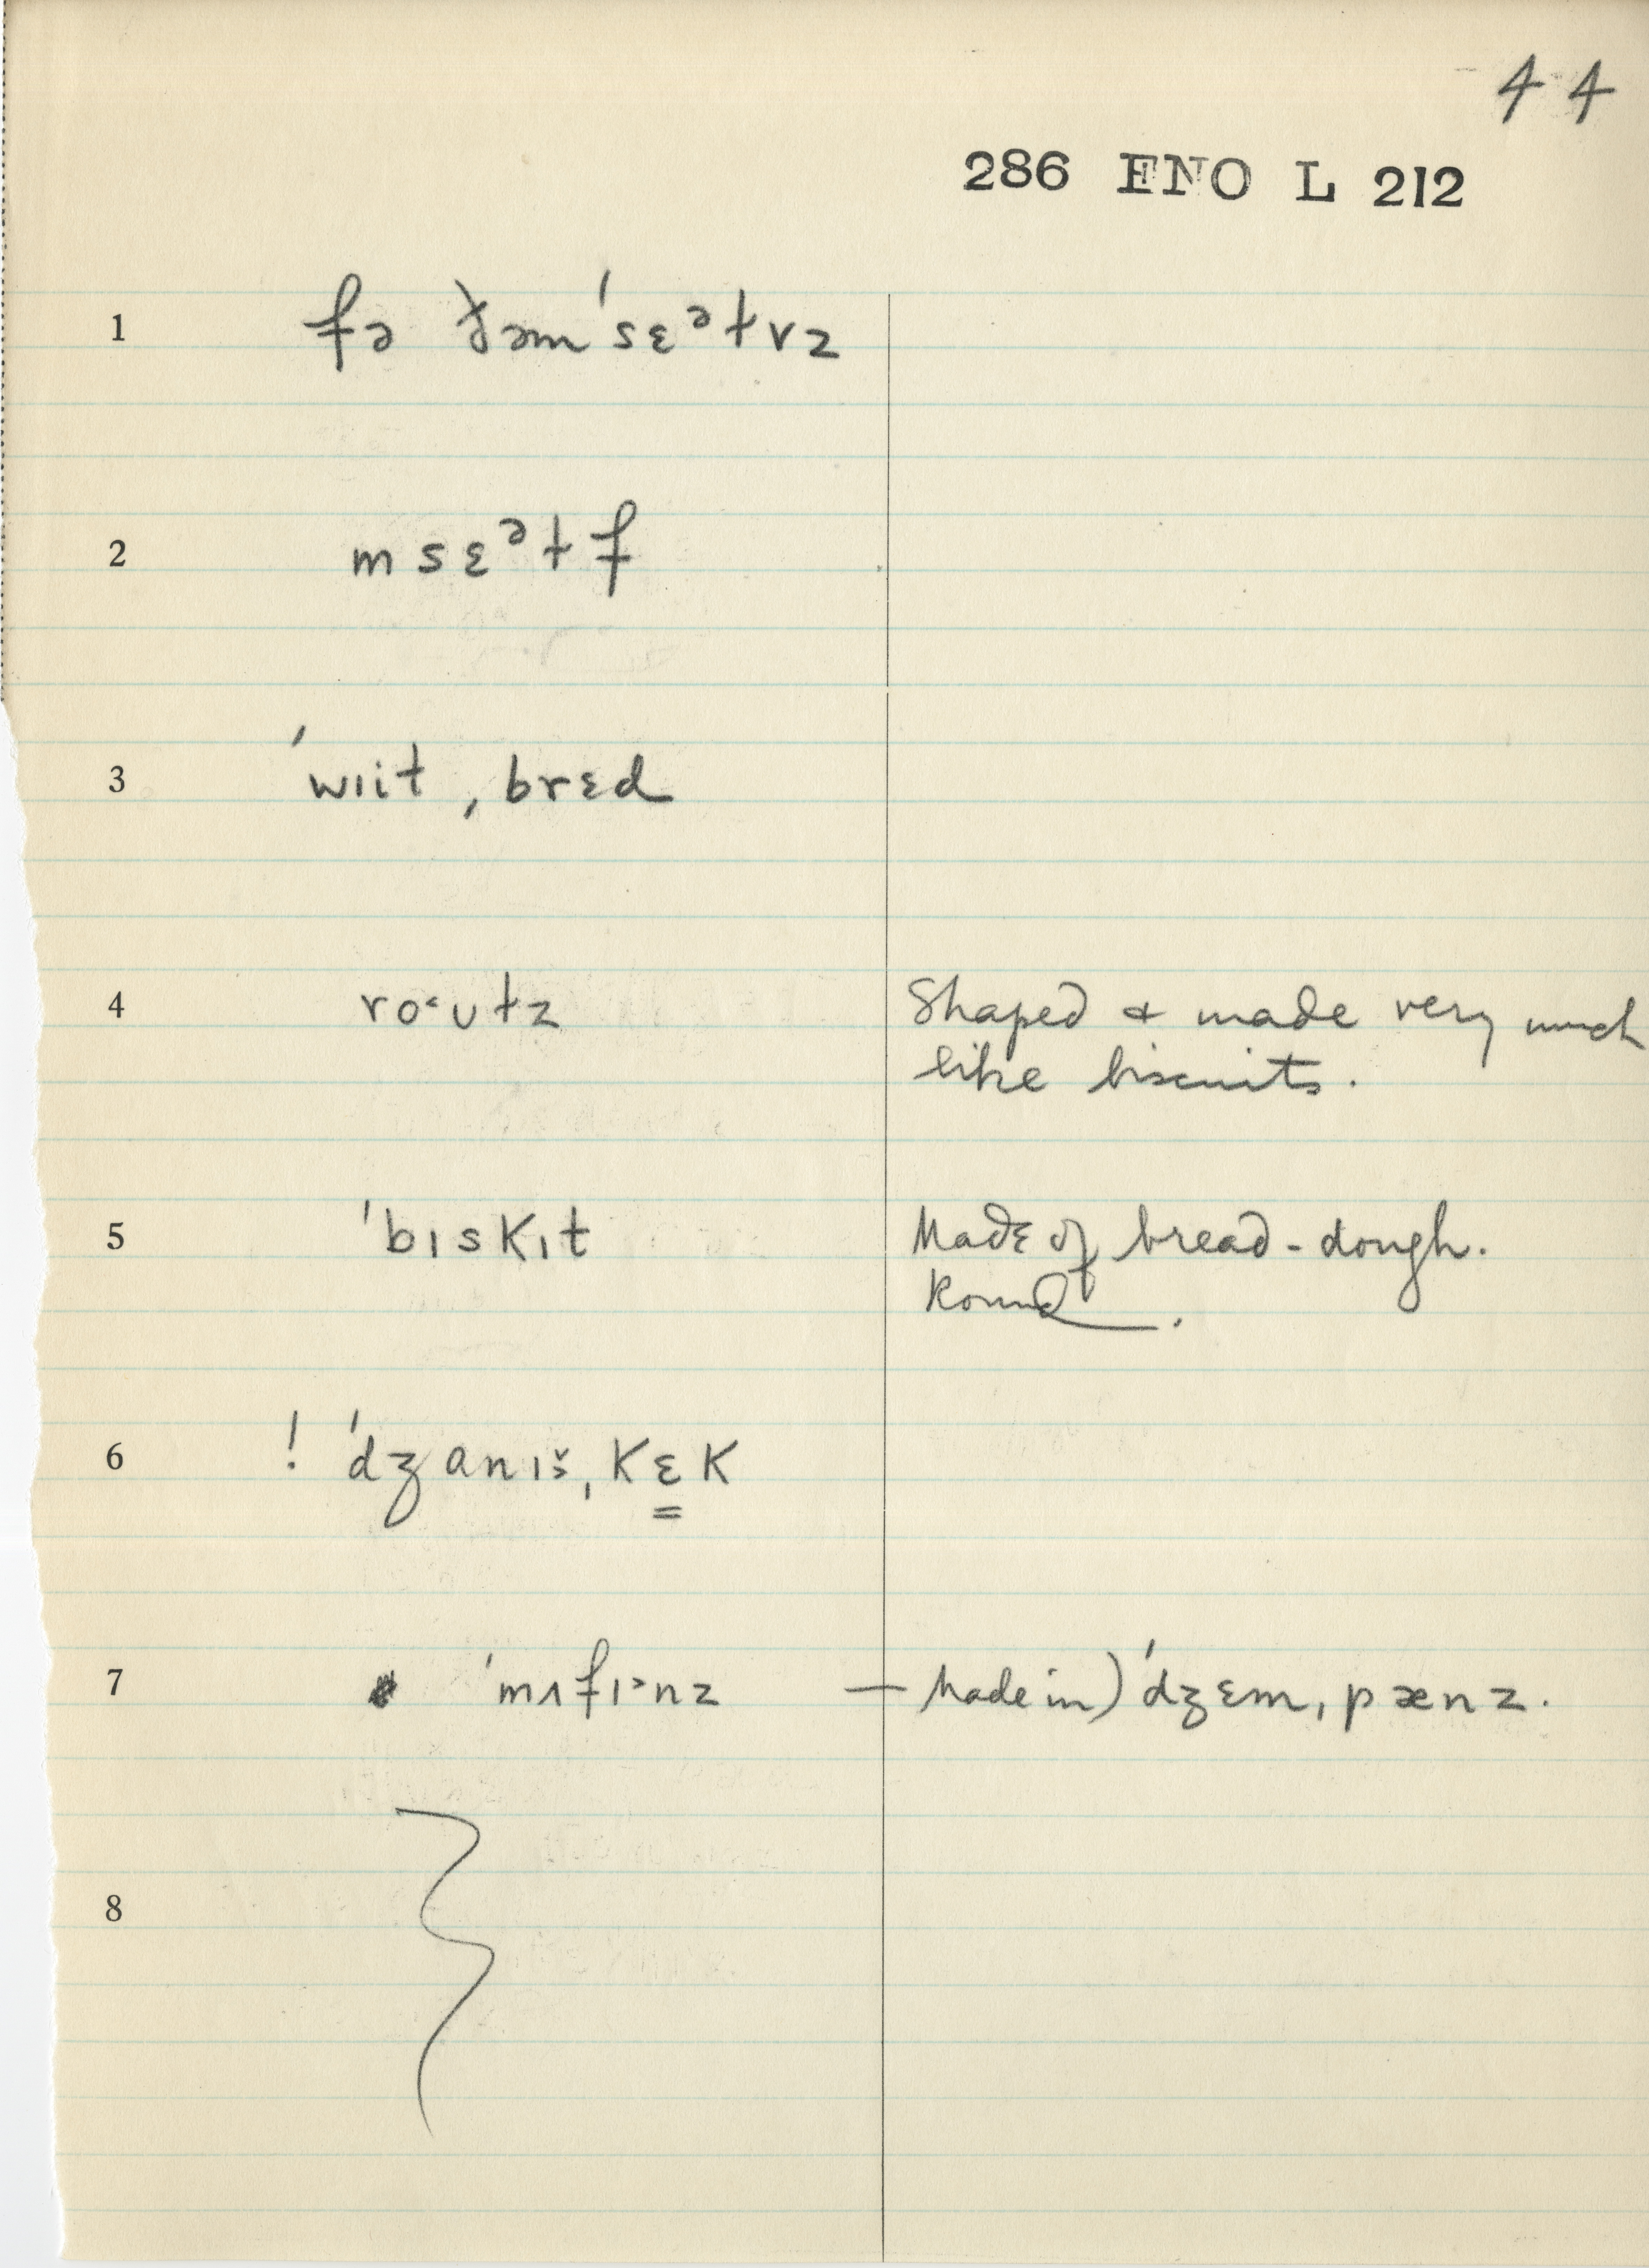 44
286 ENO L 212
1 fə ðəmˈsɛᵊɫvz
2 msɛᵊɫf
3 ˈwiit ˌbrɛd
4 ro˂ʊɫz Shaped & made very much
like biscuits.
5 ˈbɪskɪt Made of bread-dough.
Round.
6 ! ˈdʒanɪšˌkɛk
7 ˈmʌfɪ˃nz — Made in) ˈdʒɛmˌpænz.
8